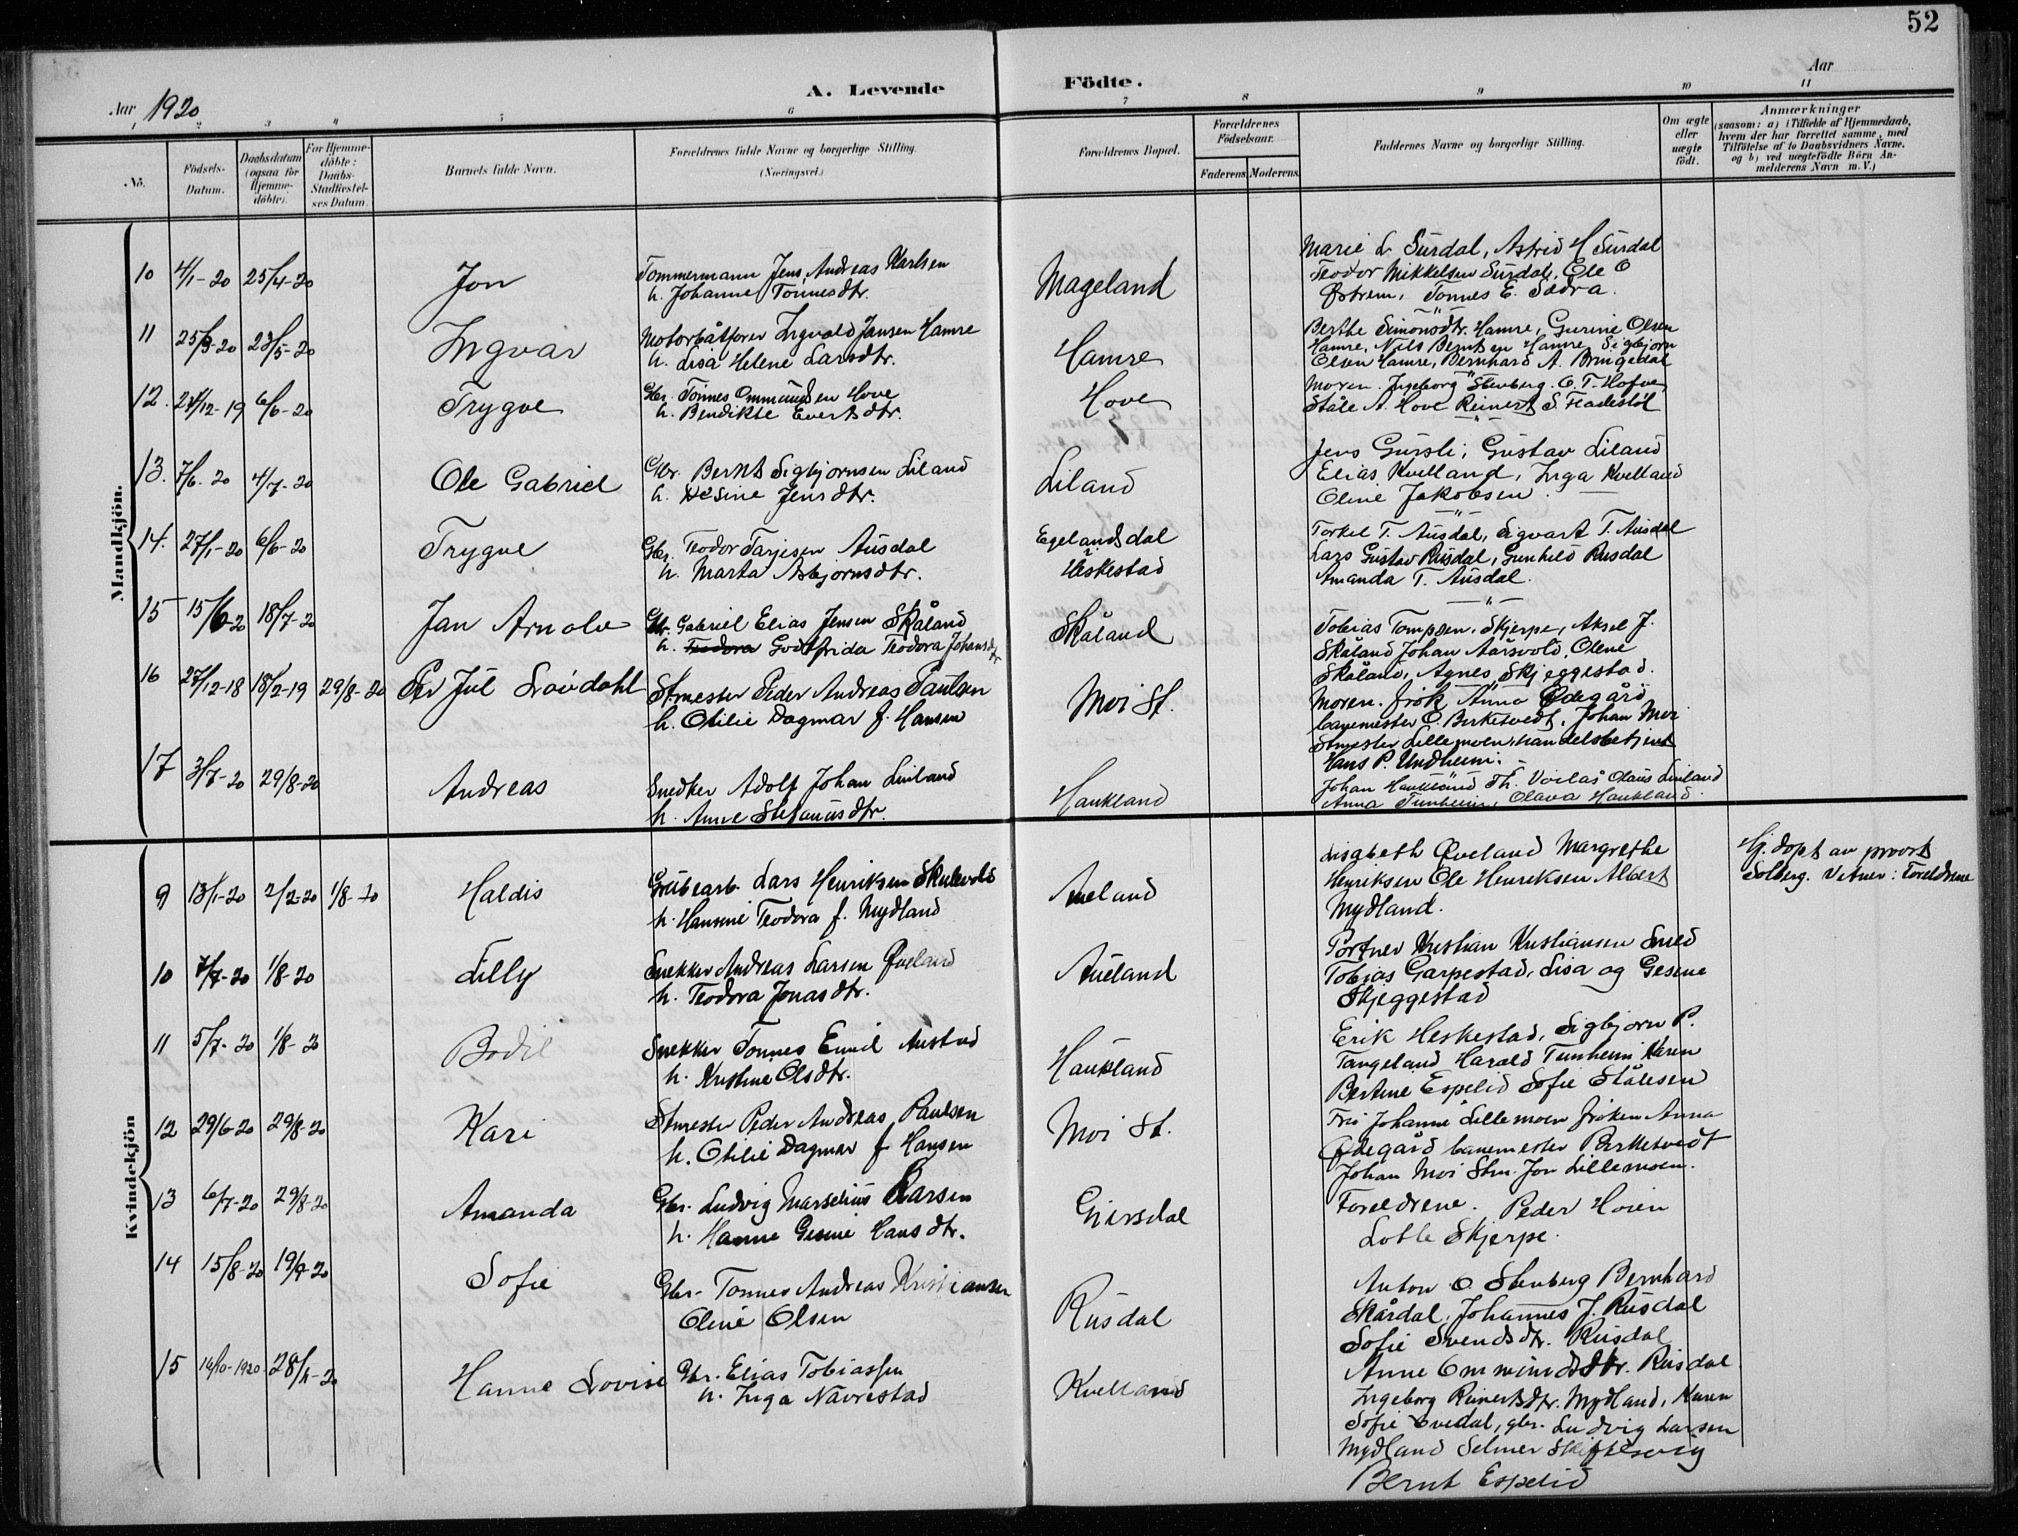 52
A. Levende Födte.
Aar 1920
Aar
1 2 3 4 5 6 7 8 9 10 11
No.
Födsels-Datum.
Daabsdatum (ogsaa for Hjemme-döbte).
For Hjemme-döbte: Daabs-Stadfæstel-ses Datum.
Barnets fulde Navn.
Forældrenes fulde Navne og borgerlige Stilling.
(Næringsvei.)
Forældrenes Bopæl.
Forældrenes Födselsaar.
Faderens. Moderens.
Faddernes Navne og borgerlige Stilling.
Om ægte eller uægte födt.
Anmærkninger
(saasom: a) i Tilfælde af Hjemmedaab, hvem der har forrettet samme, med Tilföielse af to Daabsvidners Navne, og b) ved uægtefödte Börn An-melderens Navn m. V.)
Mandkjön.
10 4/1-20 25/4-20 Jon
Tømmermann Jens Andreas Karlsen
h. Johanne Tønnesdtr.
Mageland
Marie L Surdal, Astrid H Surdal
Teodor Mikkelsen Surdal, Ole O
Østrem, Tønnes E. Sædra.
11 25/3-20 23/5-20 Ingvar
Motorbåtfører Ingvald Jansen Hamre
h. Lisa Helene Larsdtr.
Hamre
Berthe Simonsdtr. Hamre, Gurine Olsen
Hamre, Nils Berntsen Hamre, Sigbjørn
Olsen Hamre, Bernhard A. Bringedal
12. 24/12-19 6/6-20 Trygve
Gbr. Tønnes Ommundsen Hove
h. Bendikte Evertsdtr.
Hove
Moren. Ingeborg Stenberg. O. T. Hofve
Ståle A. Hove Reinert S. Fladestøl
13. 7/6-20 4/7-20 Ole Gabriel
Gbr. Bernt Sigbjørnsen Liland
h. Resine Jensdtr.
Liland
Jens Gursli, Gustav Liland
Elias Kvelland, Inga Kvelland
Oline Jakobsen.
14. 27/1-20 6/6-20 Trygve
Gbr. Teodor Tarjesen Ausdal
h. Marta Asbjørnsdtr.
Egelandsdal
i Heskestad
Torkel T. Ausdal, Sigvart T. Ausdal
Lars Gustav Rusdal, Gunhild Rusdal
Amanda T. Ausdal.
15 15/6-20 18/7-20 Jan Arnolv
Gbr. Gabriel Elias Jensen Skåland
h. Teodora Godtfrida Teodora Johansdtr
Skåland
Tobias Tompsen. Skjerpe, Aksel J.
Skåland Johan Aarsvold, Olene
Skåland, Agnes Skjeggestad.
16 27/12-18 18/2-19 29/8-20 Per Jul Løvdahl
Stmester Peder Andreas Paulsen
h. Otilie Dagmar f. Hansen
Moi St.
Moren. frøk Anna Ødegård
banemester O. Birketvedt, Johan Moi
Stmester Lillemoen, handelsbetjent
Hans P. Undheim.
17 3/7-20 29/8-20 Andreas
Snedker Adolf Johan Liland
h. Anne Stefanusdtr.
Haukland
Johan Haukland Th. Voilås Olaus Linland
Anna Tunheim, Olava Haukland.
Kvindekjön
9 13/1-20 2/2-20 1/8-20 Haldis
Grubearb. Lars Henriksen Skulevold
h. Hansine Teodora f. Mydland
Aueland
Lisabeth Øveland Margrethe
Henriksen Ole Henriksen Albert
Mydland.
Hj. døpt av provst
Solberg. Vitner: Foreldrene
10 7/7-20 1/8-20 Lilly
Snekker Andreas Larsen Øveland
h. Teodora Jonasdtr.
Aueland
Portner Kristian Kristiansen Smed
Tobias Garpestad, Lisa og Gesine
Skjeggestad
11 5/7-20 1/8-20 Bodil
Snekker Tønnes Emil Austad
h. Kristine Olsdtr.
Haukland
Erik Heskestad, Sigbjørn P.
Tangeland Harald Tunheim Karen
Bertine Espelid Sofie Stålesen
12 29/6-20 29/8-20 Kari
Stmester Peder Andreas Paulsen
h. Otilie Dagmar f Hansen
Moi St.
Fru Johanne Lillemoen frøken Anna
Ødegård banemester Birketvedt
Johan Moi Stm. Jon Lillemoen.
13 6/7-20 29/8-20 Amanda
Gbr. Ludvig Marselius Larsen
h. Hanne Gesine Hansdtr.
Eiersdal
Foreldrene. Peder Hoien
Lotte Skjerpe.
14 15/8-20 19/9-20 Sofie
Gbr. Tønnes Andreas Kristiansen
Oline Olsen
Rusdal
Anton O Stenberg Bernhard
Skårdal. Johannes J. Rusdal
Sofie Svendsdtr. Rusdal
Anne Ommundsdtr. Rusdal
15 14/10-1920 28/11-20 Hanne Lovise
Gbr. Elias Tobiassen
h. Inga Nævrestad
Kvelland
Ingeborg Reinertsdtr. Mydland, Karen
Sofie Evedal, gbr. Ludvig Larsen
Mydland Selmer Skiftesvig
Bernt Espelid